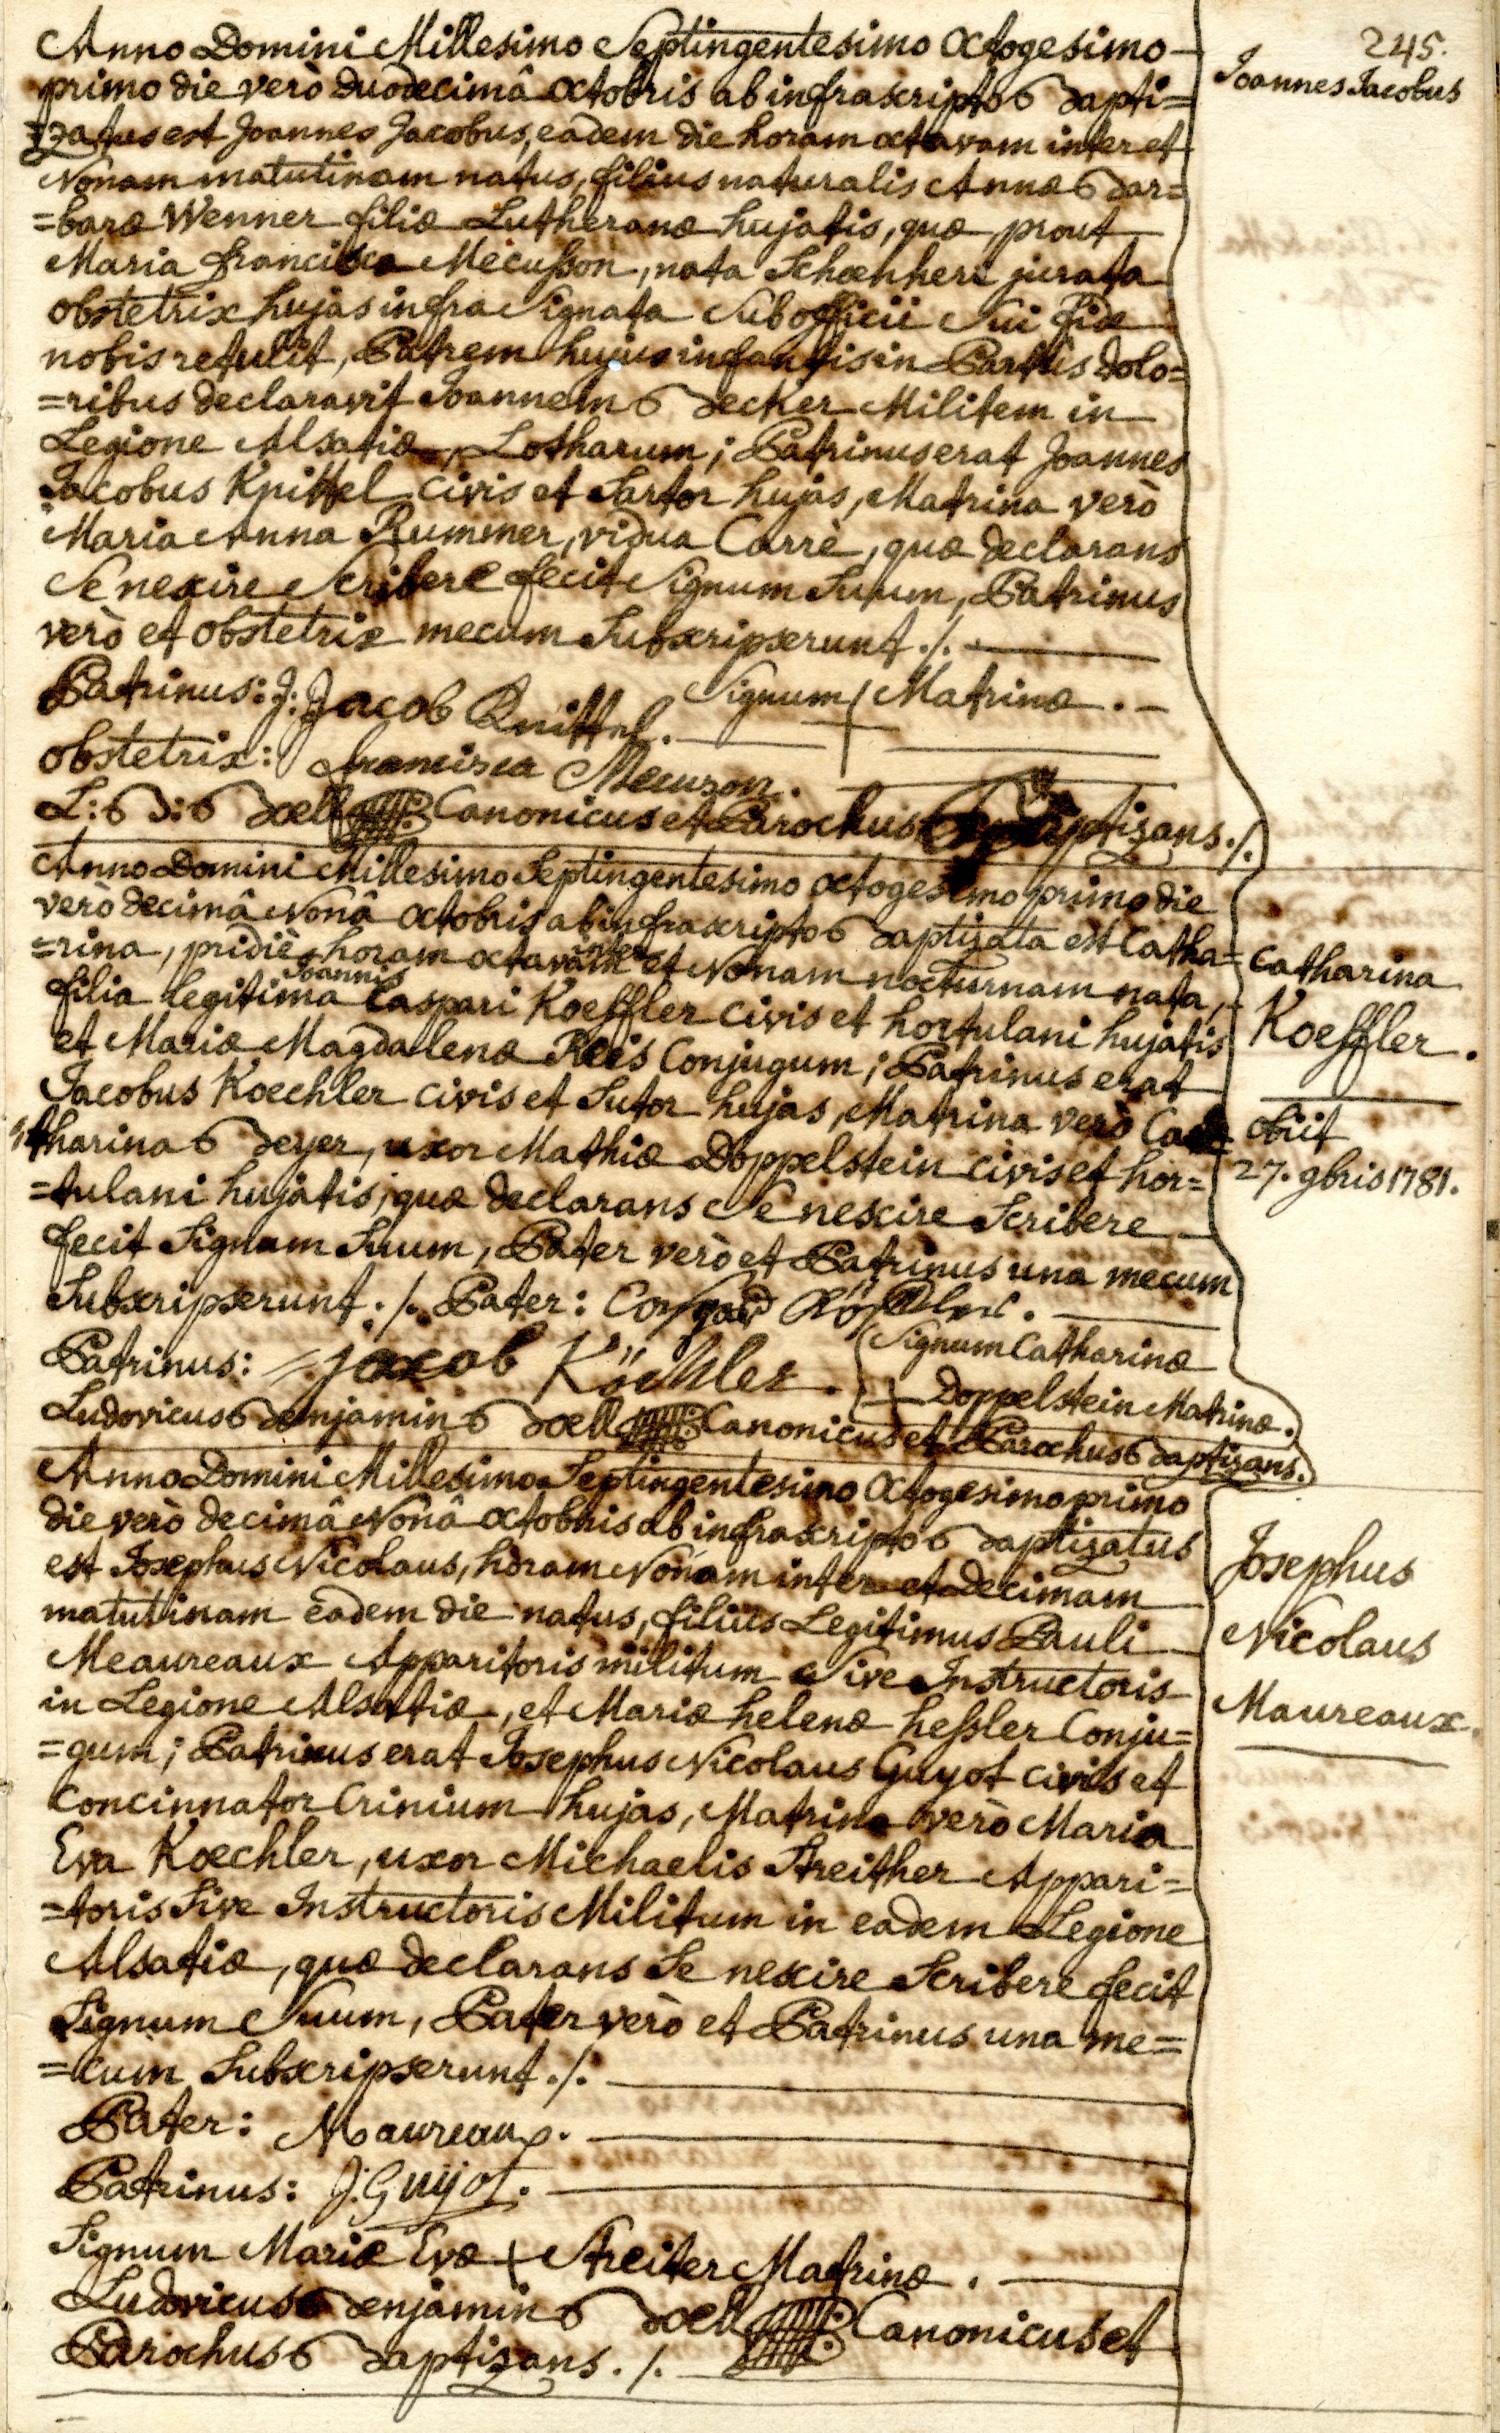 245.
Joannes Jacobus
Anno Domini Millesimo Septingentesimo Octogesimo
primo die verò duodecimâ Octobris ab infrascripto Bapti=
=zatus est Joannes Jacobus, eâdem die horam octavam inter et
Nonam matutinam natus, filius naturalis Annæ Bar=
=baræ Wenner filiæ Lutheranæ hujatis, quæ, prout
Maria francisca Mecusson, nata Schœnherr jurata
obstetrix hujas infra Signata Sub officii Sui fide
nobis retulit, Patrem hujus infantis in Partûs dolo=
=ribus declaravit Joannem Becker Militem in
Legione Alsatiæ, Lotharum; Patrinus erat Joannes
Jacobus Knittel civis et Sartor hujas, Matrina verò
Maria Anna Rummer, vidua Carrè, quæ declarans
Se nescire Scribere fecit Signum Suum, Patrinus
verò et obstetrix mecum Subscripserunt ./.
Patrinus: J. Jacob Knittel. Signum + Matrinæ.
obstetrix: francisca Mecuson.
L: B: Boell Canonicus et Parochus Baptizans ./.
Anno Domini Millesimo Septingentesimo octogesimo primo die
verò decimâ Nonâ octobris ab infrascripto Baptizata est Catha=
=rina, pridiè horam octavam inter et Nonam nocturnam nata,
filia legitima Joannis Caspari Koeffler civis et hortulani hujatis
et Mariæ Magdalenæ Reis Conjugum; Patrinus erat
Jacobus Koechler civis et Sutor hujas, Matrina verò Ca=
=tharina Beyer, uxor Mathiæ Doppelstein civis et hor=
=tulani hujatis, quæ declarans Se nescire Scribere
fecit Signum Suum, Pater verò et Patrinus una mecum
Subscripserunt ./. Pater:
Patrinus: jacob Köchler. Signum Catharinæ
+ Doppelstein Matrinæ.
Ludovicus Benjamin Boell Canonicus et Parochus Baptizans.
Catharina
Koeffler.
obiit
27. 9bris 1781.
Anno Domini Millesimo Septingentesimo Octogesimo primo
die verò decimâ Nonâ octobris ab infrascripto Baptizatus
est Josephus Nicolaus, horam Nonam inter et decimam
matutinam eâdem die natus, filius Legitimus Pauli
Meaureaux Apparitoris militum Sive Instructoris
in Legione Alsatiæ, et Mariæ helenæ heßler Conju=
=gum; Patrinus erat Josephus Nicolaus Guyot civis et
Concinnator Crinium hujas, Matrina verò Maria
Eva Koechler, uxor Michaelis Streither Appari=
=toris Sive Instructoris Militum in eadem Legione
Alsatiæ, quæ declarans Se nescire Scribere fecit
Signum Suum, Pater verò et Patrinus una me=
=cum Subscripserunt ./.
Pater: Maureaux.
Patrinus: J. Guÿot.
Signum Mariæ Evæ + Streiter Matrinæ.
Ludovicus Benjamin Boell Canonicus et
Parochus Baptizans ./.
Josephus
Nicolaus
Maureaux.